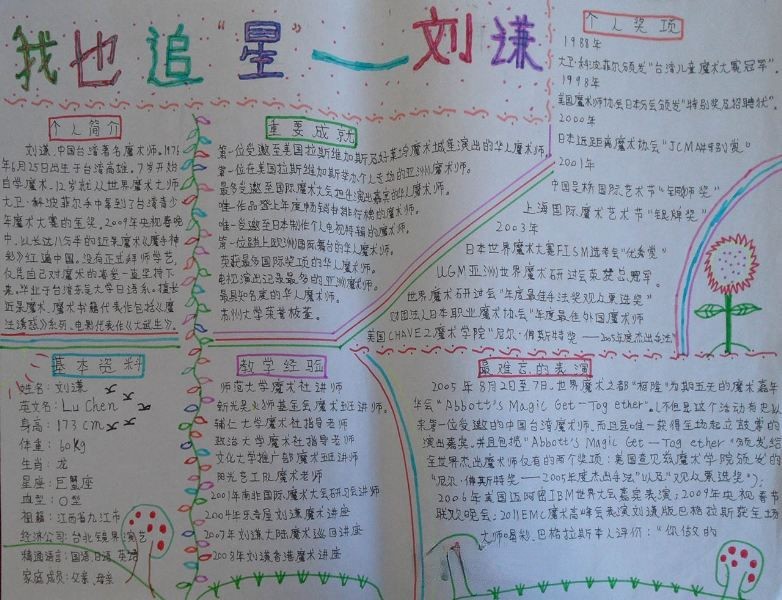 我也追"星"——刘谦
个人简介
刘谦,中国台湾著名魔术师。1976
年6月25日出生于台湾高雄。7岁开始
自学魔术。12岁就从世界魔术大师
大卫·科波菲尔手中拿到了台湾青少
年魔术大赛的金奖。2009年央视春晚
中,以长达八分手的近景魔术《魔手神
彩》红遍中国。没有正式拜师学艺,
仅凭自己对魔术的喜爱一直坚持下
来。毕业于台湾东吴大学日语系。擅长
近景魔术。魔术书籍代表作包括《魔
法诱惑》系列。电影代表作《大武生》。
重要成就
第一位受邀至美国拉斯维加斯及好莱坞魔术城堡演出的华人魔术师。
第一位在美国拉斯维加斯举办个人专场的亚洲魔术师。
最多受邀至国际魔术大会担任演出嘉宾的华人魔术师。
唯一作品登上年度畅销书排行榜的魔术师。
唯一受邀至日本制作个人电视特辑的魔术师。
第一位踏上欧洲国际舞台的华人魔术师。
英获最多国际奖项的华人魔术师。
电视演出记录最多的亚洲魔术师。
最具知名度的华人魔术师。
苏州大学荣誉校董。
个人奖项
1988年
大卫·科波菲尔颁发"台湾儿童魔术大赛冠军"
1998年
美国魔术师协会日本分会颁发"特别奖及招聘状"
2000年
日本近距离魔术协会"JCMA特别赏"
2001年
中国吴桥国际艺术节"铜狮奖"
上海国际魔术艺术节"银牌奖"
2003年
日本世界魔术大赛FISM选考会"优秀赏"
UGM亚洲世界魔术研讨会英赞总冠军。
世界魔术研讨会"年度最佳手法奖观众票选奖"
财团法人日本职业魔术协会"年度最佳外国魔术师
美国CHAVEZ魔术学院"尼尔·佛斯特奖——2005年度杰出手法
基本资料
姓名:刘谦
英文名:Lu Chen
身高:173cm
体重:60kg
生肖:龙
星座:巨蟹座
血型:O型
祖籍:江西省九江市
经济公司:台北镜界演艺
精通语言:国语,日语,英语
家庭成员:父亲、母亲
教学经验
师范大学魔术社讲师
新光吴火狮基金会魔术班讲师。
辅仁大学魔术社指导老师
政治大学魔术社指导老师
文化大学推广部魔术班讲师
阳光艺工队魔术老师
2001年南非国际魔术大会研习会讲师
2004年乐声屋刘谦魔术讲座
2007年刘谦大陆魔术巡回讲座
2008年刘谦香港魔术讲座
最难忘的表演
2005年8月2日至7日,世界魔术之都"柯隆"为期五天的魔术嘉年
华会"Abbott's Magic Get—Tog ether"。(不但是这个活动有史以
来第一位受邀的中国台湾魔术师,而且是唯一获得全场起立鼓掌的
演出嘉宾。并且包揽"Abbott's Magic Get—Tog ether"颁发给
全世界杰出魔术师仅有的两个奖项:美国查贝兹魔术学院颁发的
"尼尔·佛斯特奖——2005年度杰出手法奖"以及"观众票选奖");
2006年美国迈阿密IBM世界大会嘉宾表演;2009年央视春节
联欢晚会;2011EMC魔术高峰会表演刘谦版巴格拉斯获全场
大师喝彩,巴格拉斯本人评价:"你做的